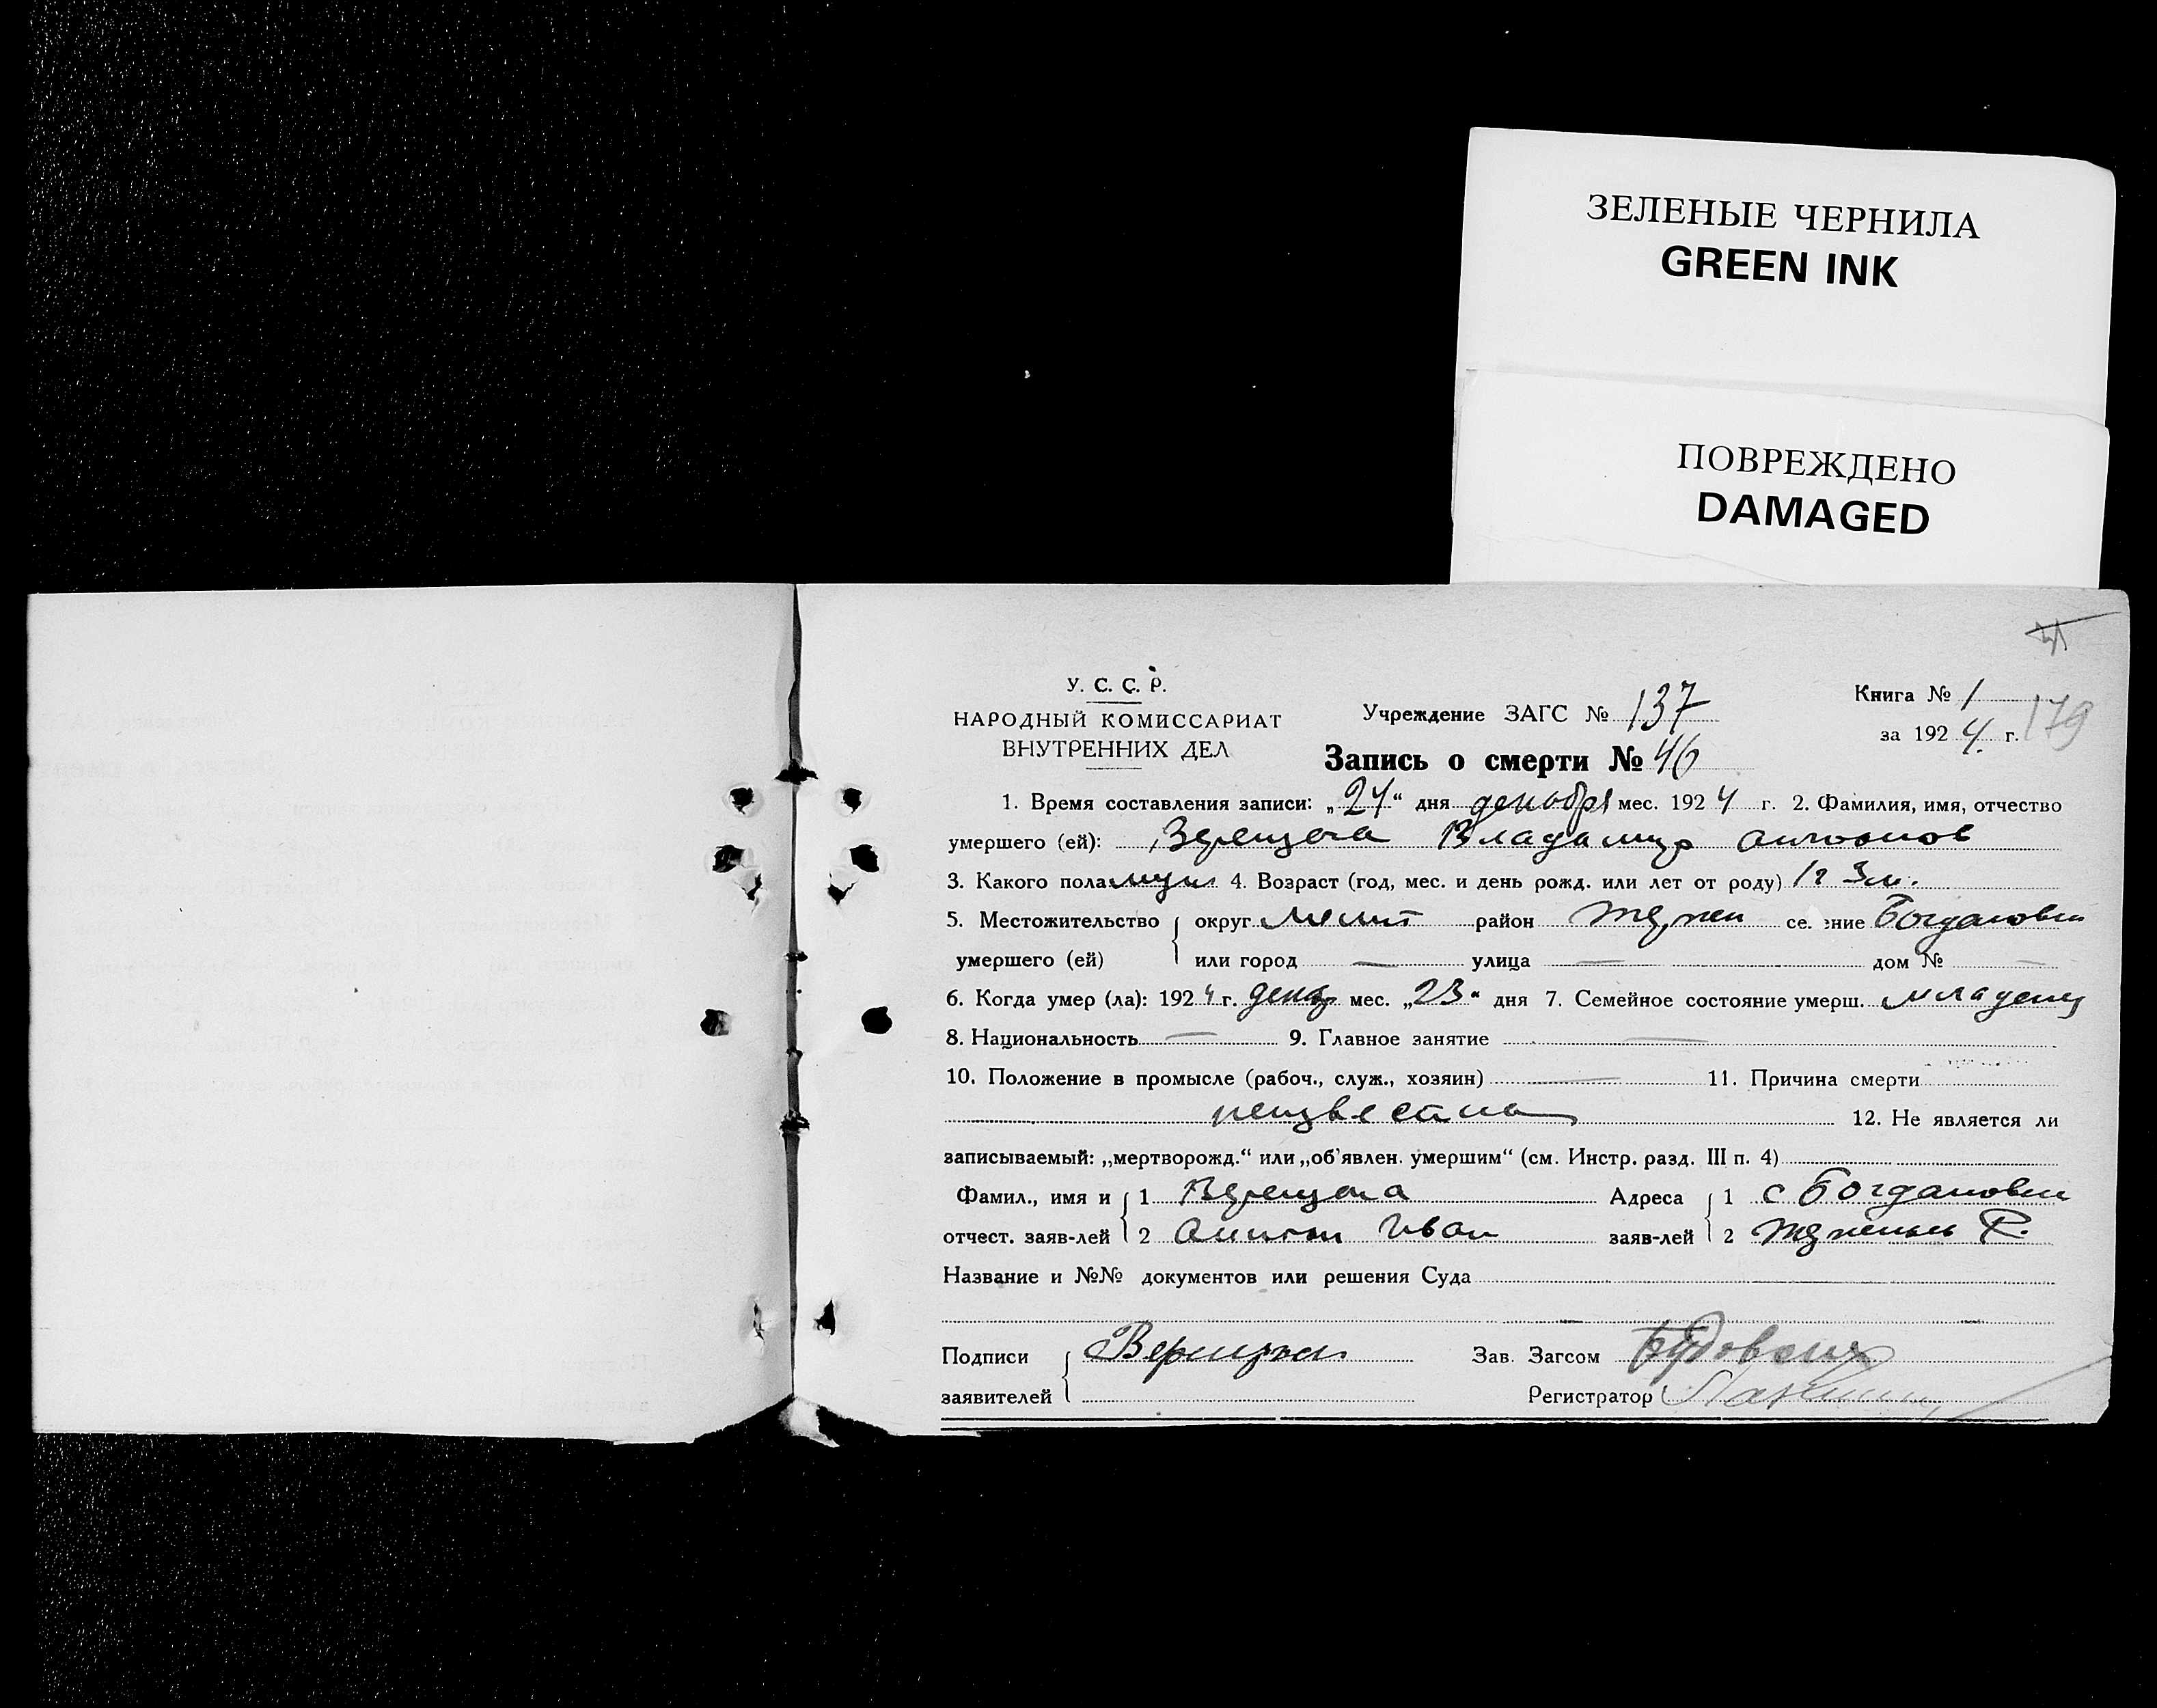 ЗЕЛЕНЫЕ ЧЕРНИЛА
GREEN INK
ПОВРЕЖДЕНО
DAMAGED
У. С. С. Р.
НАРОДНЫЙ КОМИССАРИАТ
ВНУТРЕННИХ ДЕЛ
Учреждение ЗАГС № 137
Книга № 1
за 1924 г. 179
Запись о смерти № 46
1. Время составления записи: „24“ дня декабря мес. 1924 г. 2. Фамилия, имя, отчество
умершего (ей): Верещага Владимир Антонов
3. Какого пола муж 4. Возраст (год, мес. и день рожд. или лет от роду) 1 г 3 м.
5. Местожительство округ Мелит район се. ение Богдановка
умершего (ей) или город — улица — дом № —
6. Когда умер (ла): 1924 г. декабр мес. „23“ дня 7. Семейное состояние умерш. младенец
8. Национальность — 9. Главное занятие —
10. Положение в промысле (рабоч., служ., хозяин) — 11. Причина смерти
неизвестна 12. Не является ли
записываемый: „мертворожд.“ или „об'явлен. умершим“ (см. Инстр. разд. III п. 4)
Фамил., имя и 1 Верещага Адреса 1 с Богдановка
отчест. заяв-лей 2 Антон Иван заяв-лей 2 Р.
Название и №№ документов или решения Суда
Подписи Зав. Загсом
заявителей Регистратор